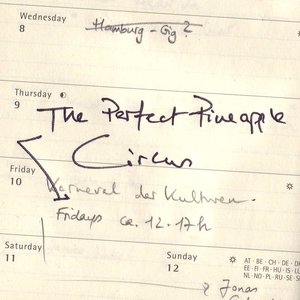 Wednesday
8
Hamburg - Gig?
Thursday
9
The Perfect Pineapple
Circus
Friday
10
Karneval der Kulturen.
Fridays ca. 12.17h
Saturday
11
Sunday
12
AT · BE · CH · DE · DK
EE · FI · FR · HU · IS · LU
NL · NO · PL · RU · SE · SI
Jonas